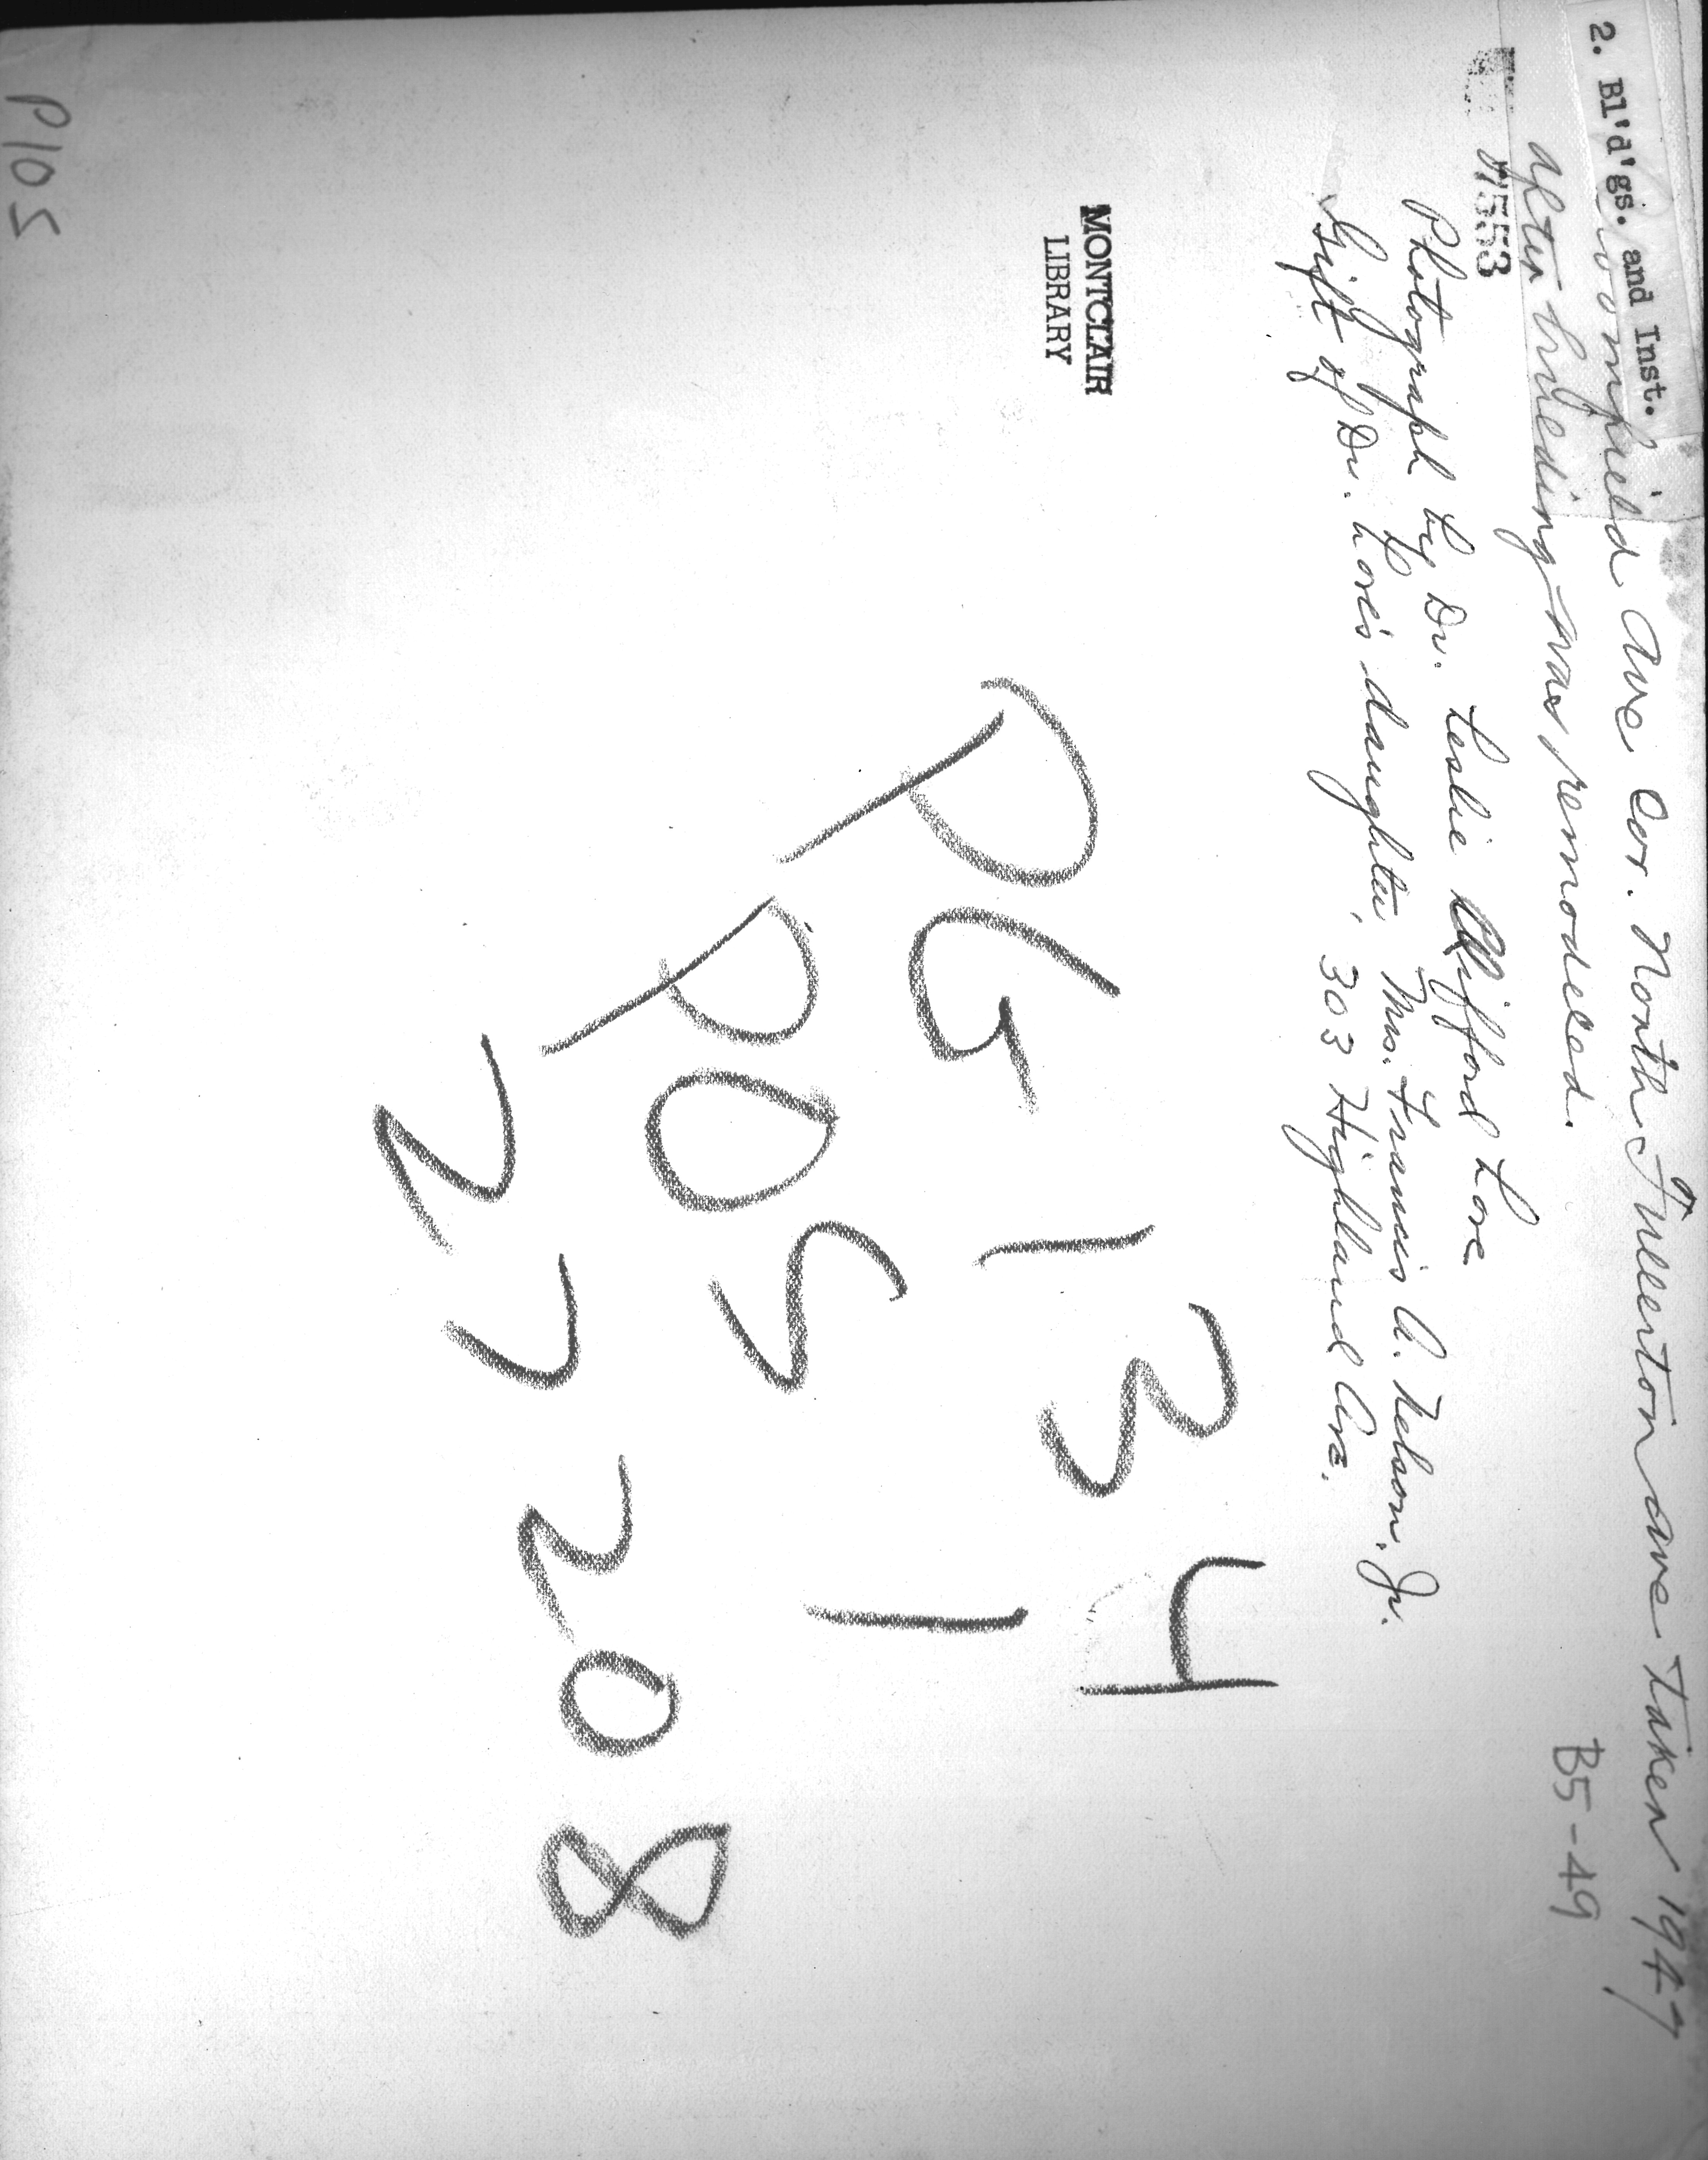 2. Bl'd'gs. and Inst.
Bloomfield Ave Cor. North Fullerton ave taken 1947
after building was remodeled.
B5-49
7553
Photograph by Dr. Leslie Clifford Love
Gift of Dr. Love's daughter, Mrs. Francis A. Nelson, Jr.
303 Highland Ave.
MONTCLAIR
LIBRARY
PG 134
POS 1
2 1/2 08
P105